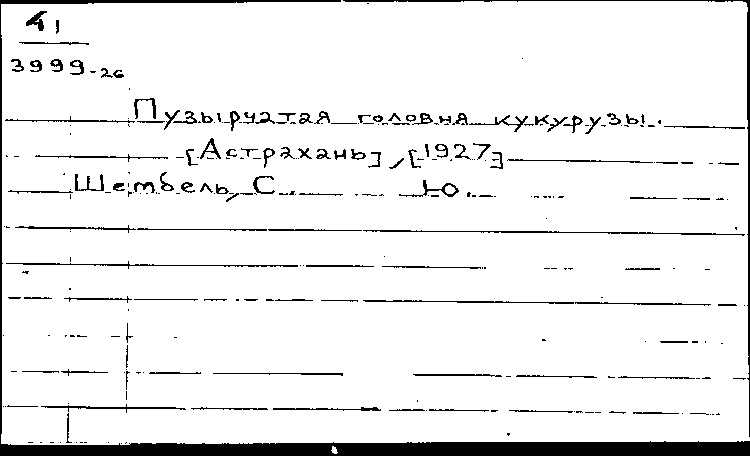 41
3999-26
Пузырчатая головня кукурузы.
[Астрахань], [1927]
Шембель, С. Ю.